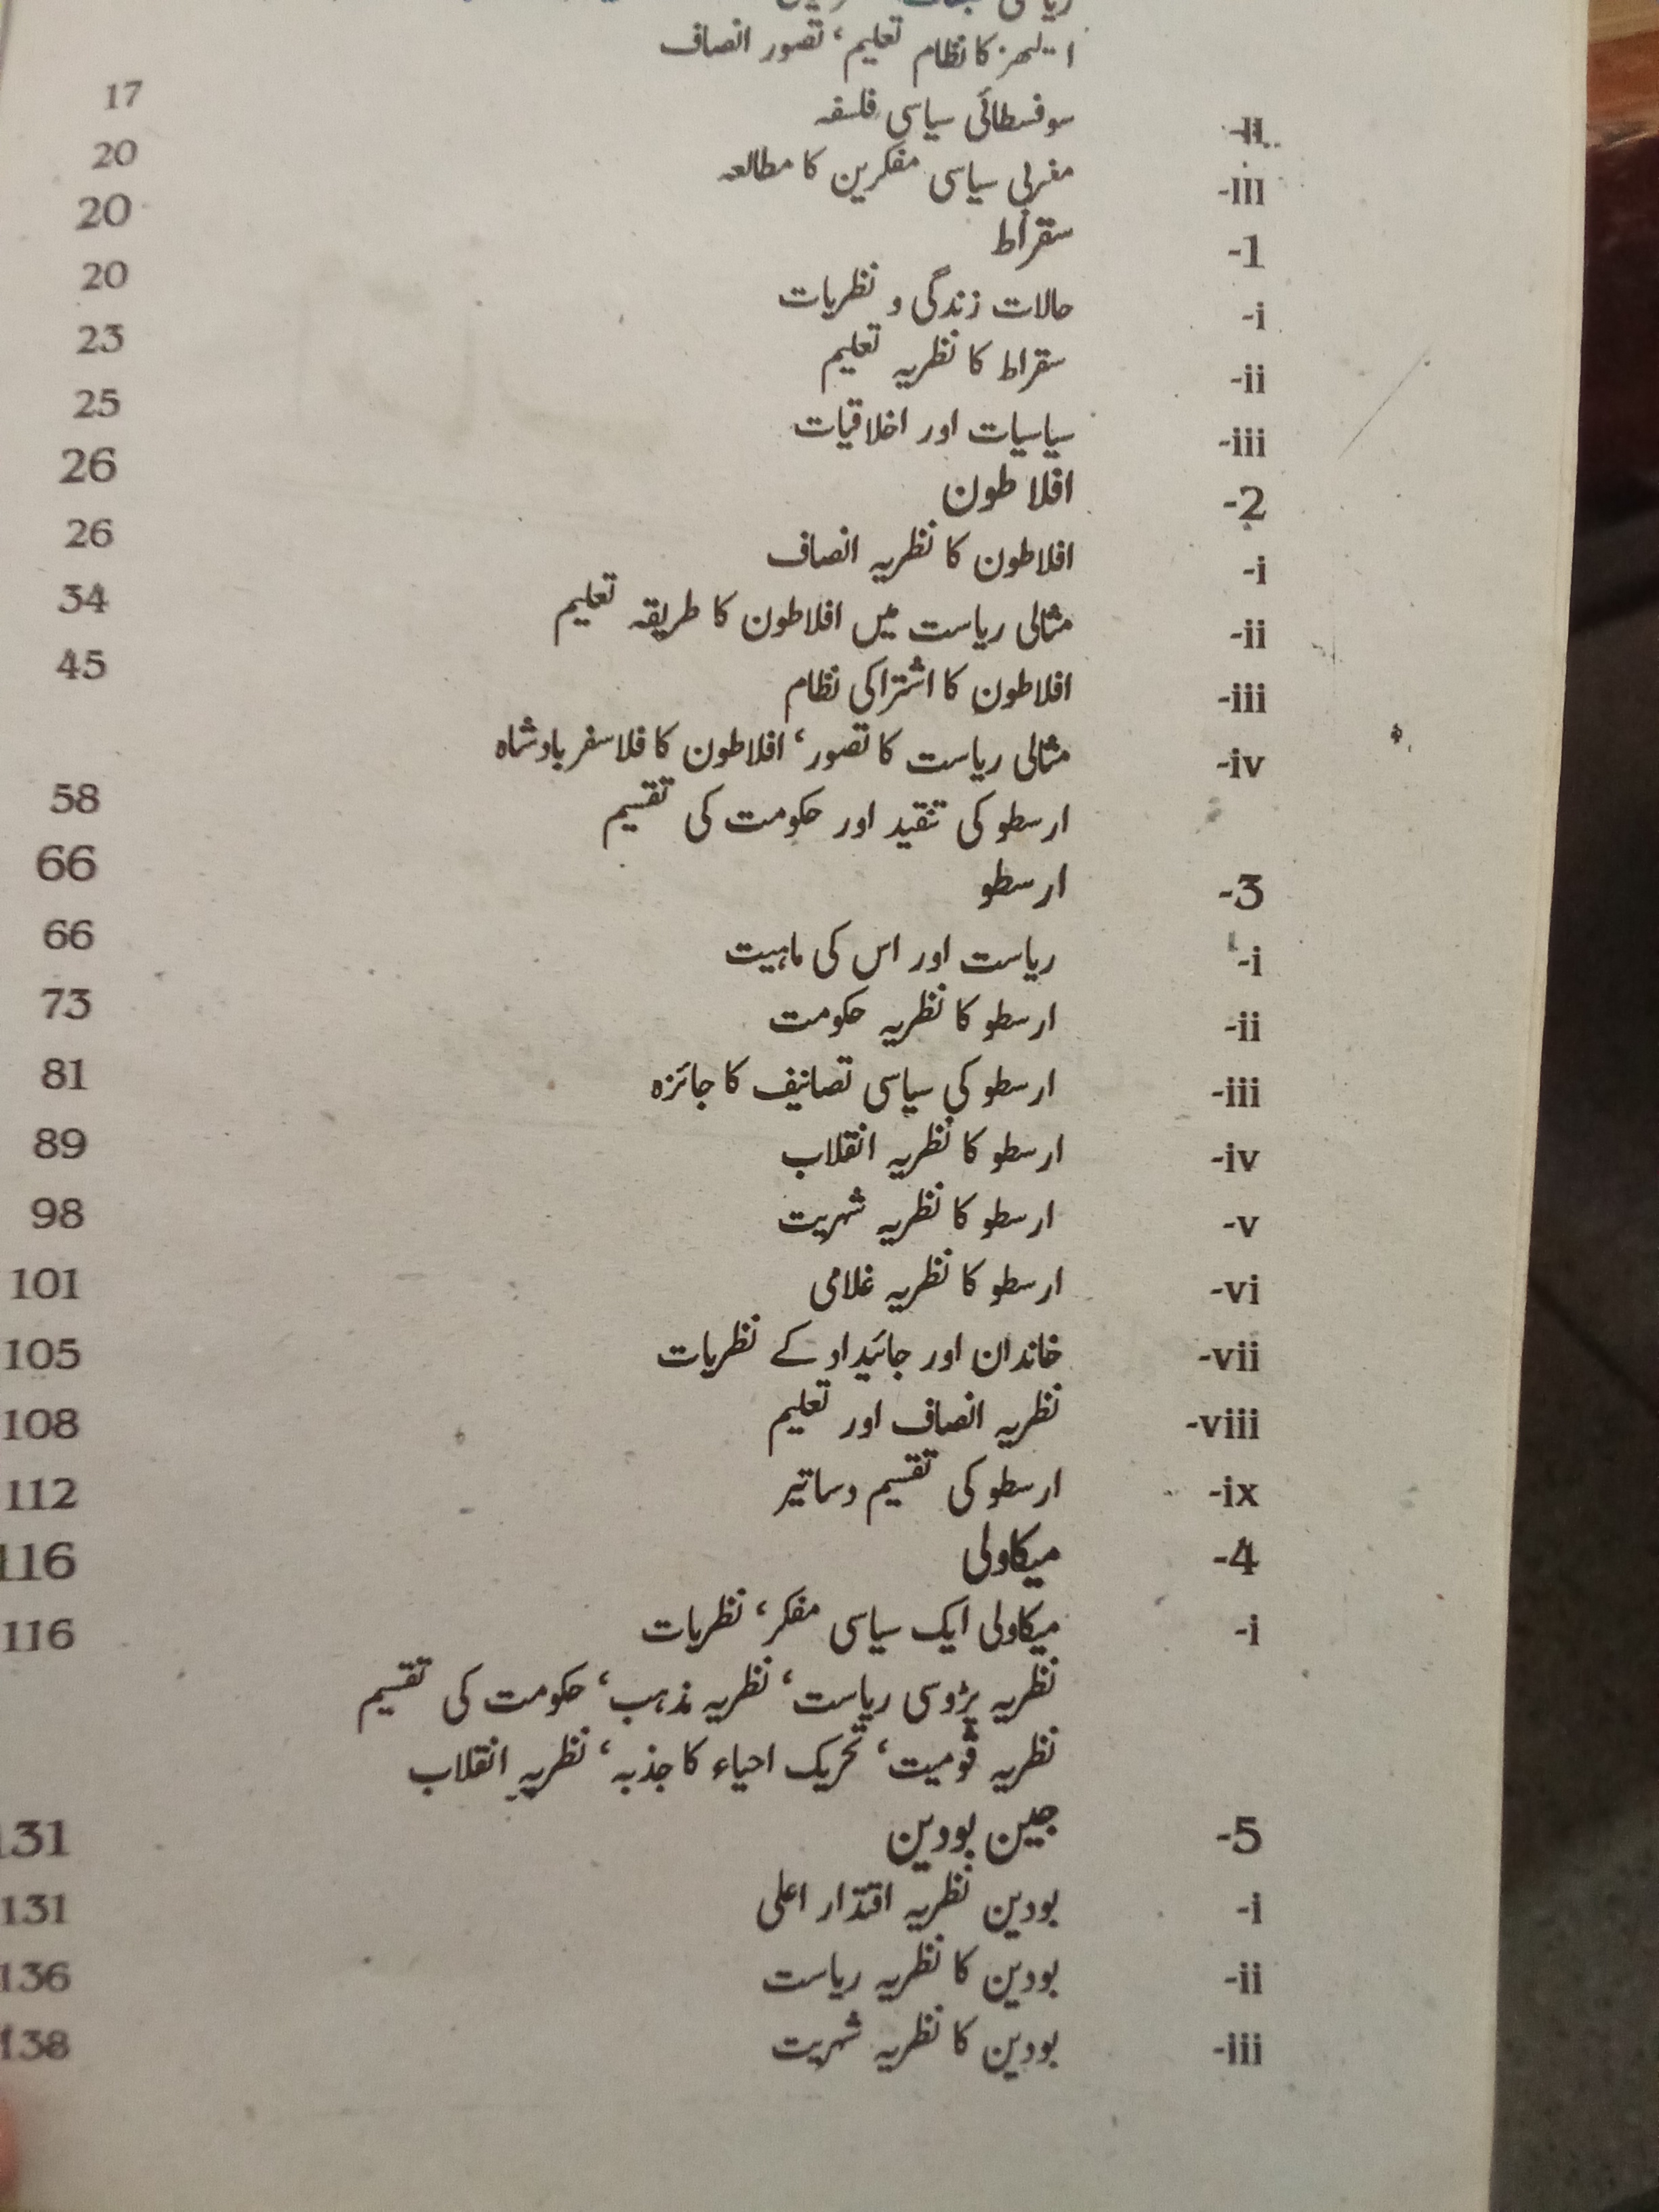 ایتھنز کا نظام تعلیم، تصور انصاف
II- سوفسطائی سیاسی فلسفہ 17
III- مغربی سیاسی مفکرین کا مطالعہ 20
1- سقراط 20
i- حالات زندگی و نظریات 20
ii- سقراط کا نظریہ تعلیم 23
iii- سیاسیات اور اخلاقیات 25
2- افلاطون 26
i- افلاطون کا نظریہ انصاف 26
ii- مثالی ریاست میں افلاطون کا طریقہ تعلیم 34
iii- افلاطون کا اشتراکی نظام 45
iv- مثالی ریاست کا تصور، افلاطون کا فلاسفر بادشاہ
ارسطو کی تنقید اور حکومت کی تقسیم 58
3- ارسطو 66
i- ریاست اور اس کی ماہیت 66
ii- ارسطو کا نظریہ حکومت 73
iii- ارسطو کی سیاسی تصانیف کا جائزہ 81
iv- ارسطو کا نظریہ انقلاب 89
v- ارسطو کا نظریہ شہریت 98
vi- ارسطو کا نظریہ غلامی 101
vii- خاندان اور جائیداد کے نظریات 105
viii- نظریہ انصاف اور تعلیم 108
ix- ارسطو کی تقسیم دساتیر 112
4- میکاولی 116
i- میکاولی ایک سیاسی مفکر، نظریات 116
نظریہ پڑوسی ریاست، نظریہ مذہب، حکومت کی تقسیم
نظریہ قومیت، تحریک احیاء کا جذبہ، نظریہ انقلاب
5- جین بودین 131
i- بودین نظریہ اقتدار اعلی 131
ii- بودین کا نظریہ ریاست 136
iii- بودین کا نظریہ شہریت 138